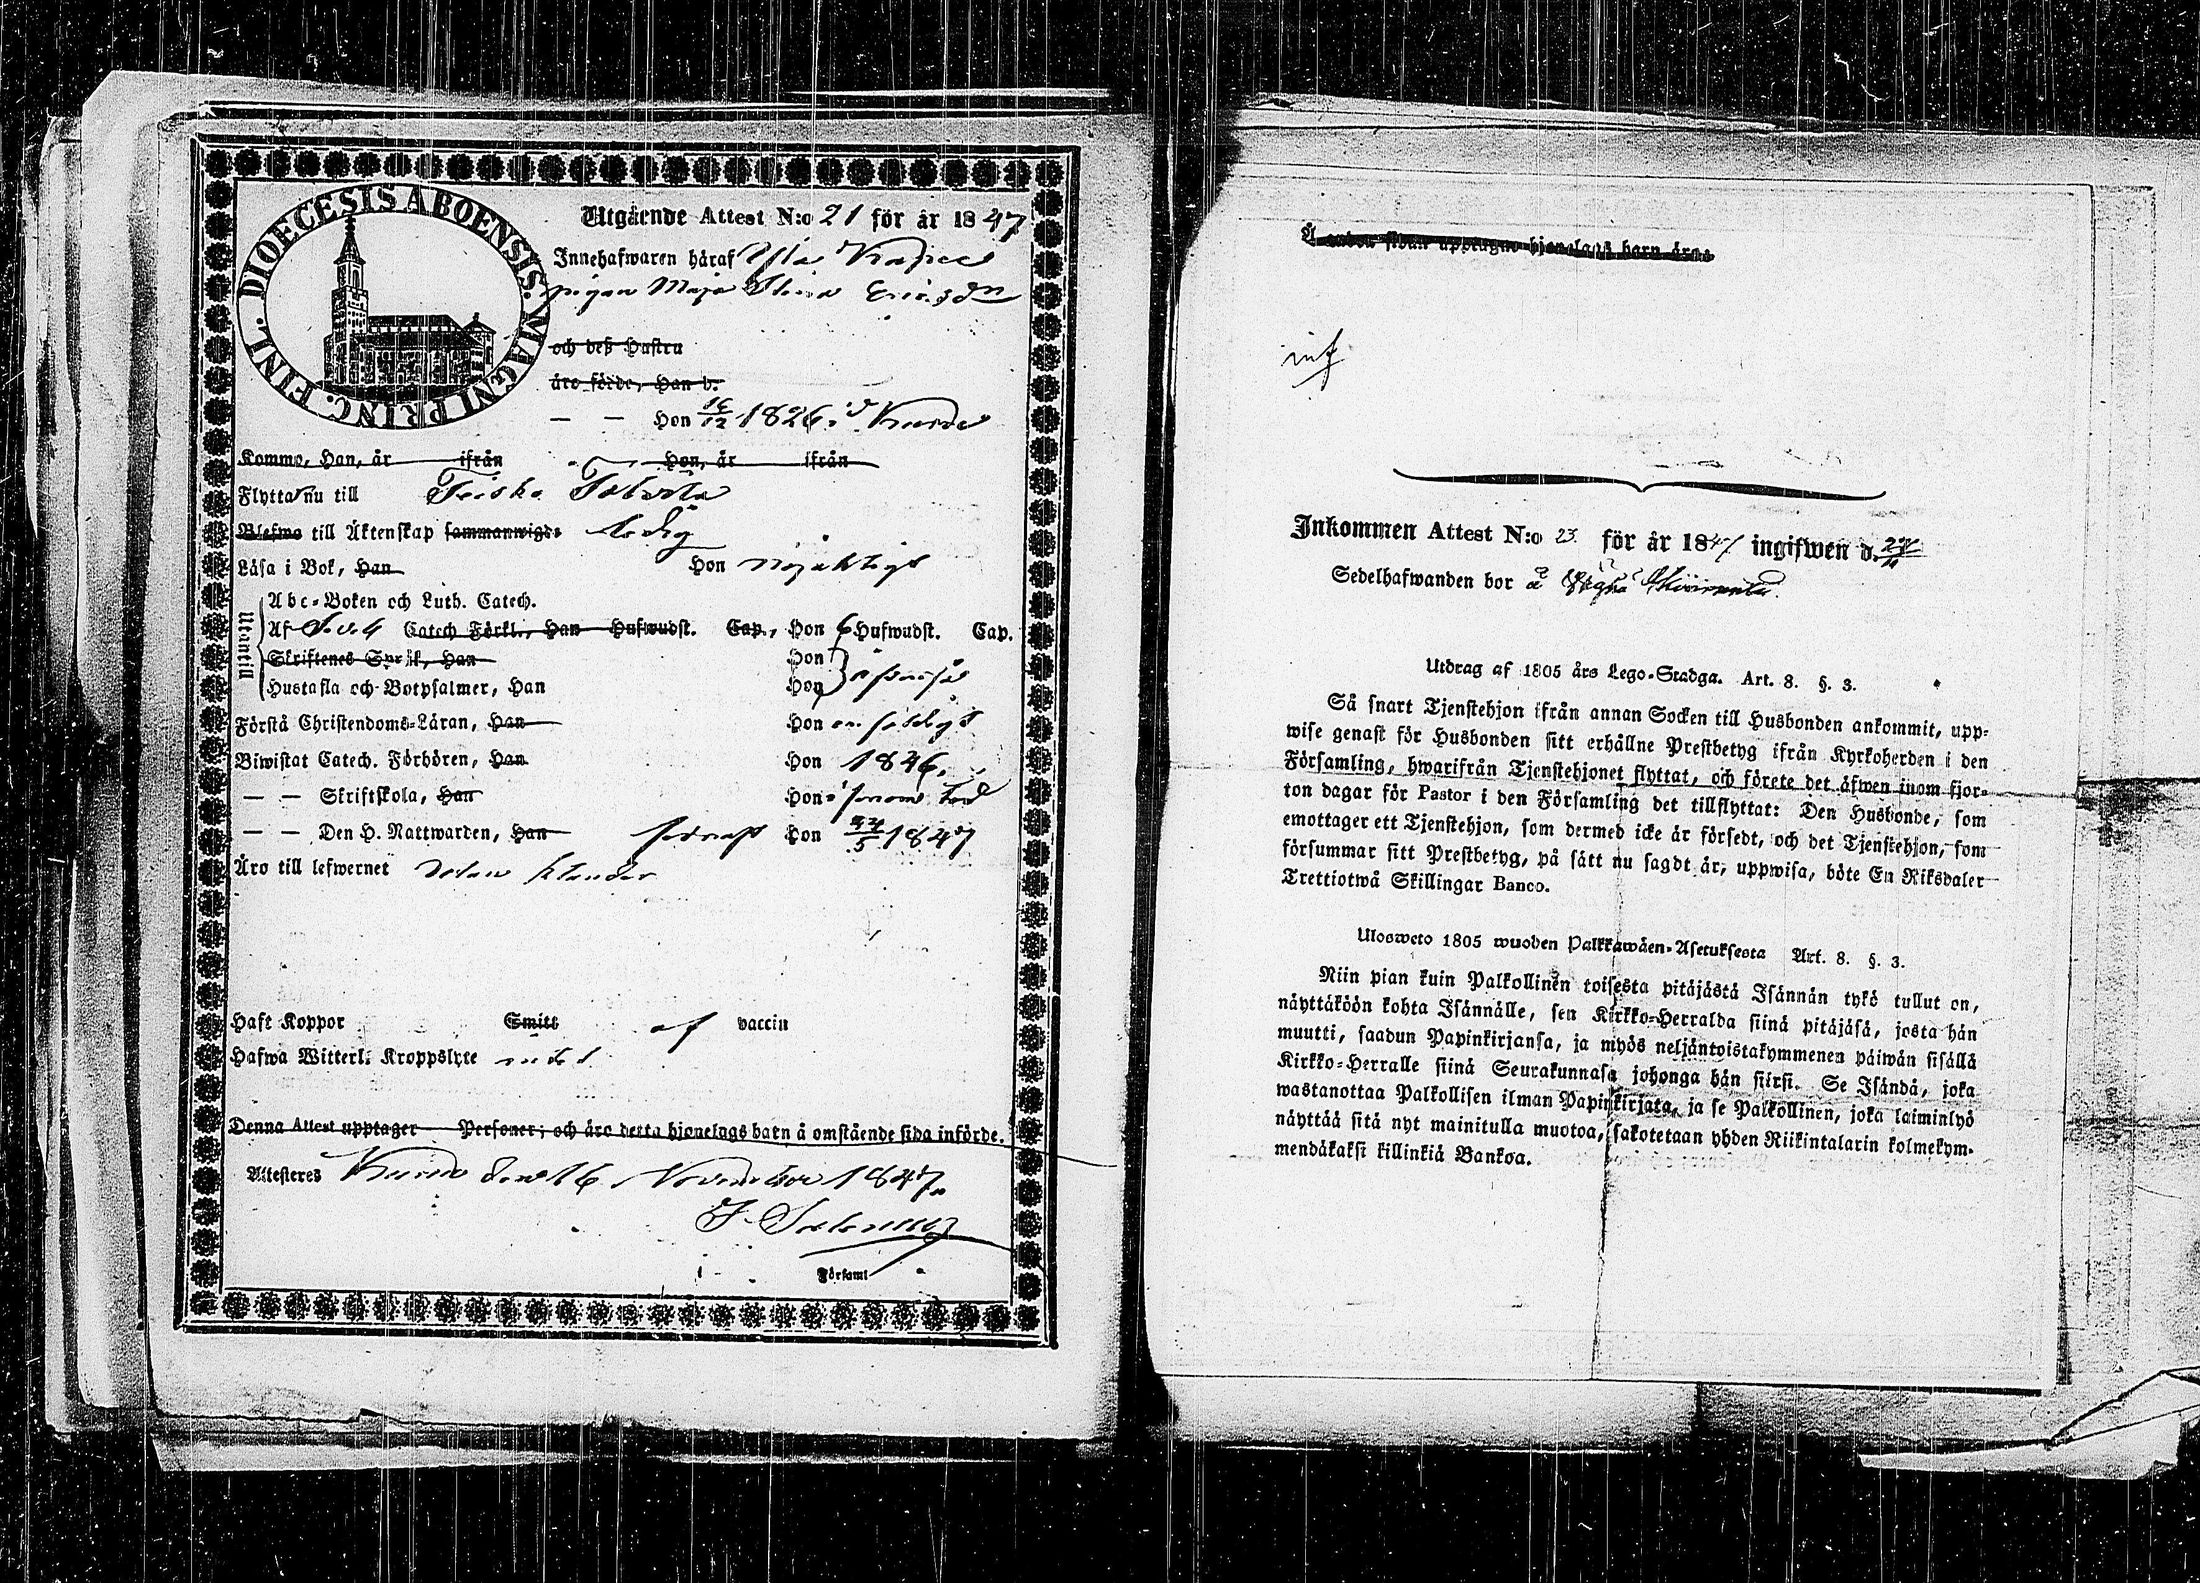 DIOECESIS ABOENSIS. MAGNI PRINC. FINL.
Utgående Attest N:o 21 för år 1847
Innehafwaren häraf
pigan Maja Stina Ericsdn
och deß Hustru
äro födde, Han d.
— — Hon 16/12 1826 i
Komma, Han, år ifrån Hon, år ifrån
Flytta nu till Teisko
Blefwo till Äktenskap sammanwigde ledig
Läsa i Bok, Han Hon nöjaktigt
Utantill
Abc-Boken och Luth. Catech.
Af Catech Förkl., Han Hufwudst. Cap., Hon 6 Hufwudst. Cap.
Skriftenes Språk, Han Hon
Hustafla och Botpsalmer, Han Hon
Förstå Christendoms-Läran, Han Hon
Biwistat Catech. Förhören, Han Hon 1846.
— — Skriftskola, Han Hon
— — Den H. Nattwarden, Han Hon 24/5 1847
Äro till lefwernet utan klander
Haft Koppor Smitt af vaccin
Hafwa Witterl. Kroppslyte
Denna Attest upptager Personer; och äro detta hjonelags barn å omstående sida införde.
Attesteres den 16 November 1847.
Församl
Inkommen Attest N:o 23. för år 1847 ingifwen d.
Sedelhafwanden bor å
Utdrag af 1805 års Lego-Stadga. Art. 8. §. 3.
Så snart Tjenstehjon ifrån annan Socken till Husbonden ankommit, upp-
wise genast för Husbonden sitt erhållne Prestbetyg ifrån Kyrkoherden i den
Församling, hwarifrån Tjenstehjonet flyttat, och förete det äfwen inom fjor-
ton dagar för Pastor i den Församling det tillflyttat: Den Husbonde, som
emottager ett Tjenstehjon, som dermed icke är försedt, och det Tjenstehjon, som
försummar sitt Prestbetyg, på sätt nu sagdt är, uppwisa, böte En Riksdaler
Trettiotwå Skillingar Banco.
Ulosweto 1805 wuoden Palkkawäen-Asetuksesta Art. 8. §. 3.
Niin pian kuin Palkollinen toisesta pitäjästä Isännän tykö tullut on,
näyttäköön kohta Isännälle, sen Kirkko-Herralda siinä pitäjäsä, josta hän
muutti, saadun Papinkirjansa, ja myös neljäntoistakymmenen päiwän sisällä
Kirkko-Herralle siinä Seurakunnasa johonga hän siirsi. Se Isändä, joka
wastanottaa Palkollisen ilman Papinkirjata, ja se Palkollinen, joka laiminlyö
näyttää sitä nyt mainitulla muotoa, sakotetaan yhden Riikintalarin kolmekym-
mendäkaksi killinkiä Bankoa.